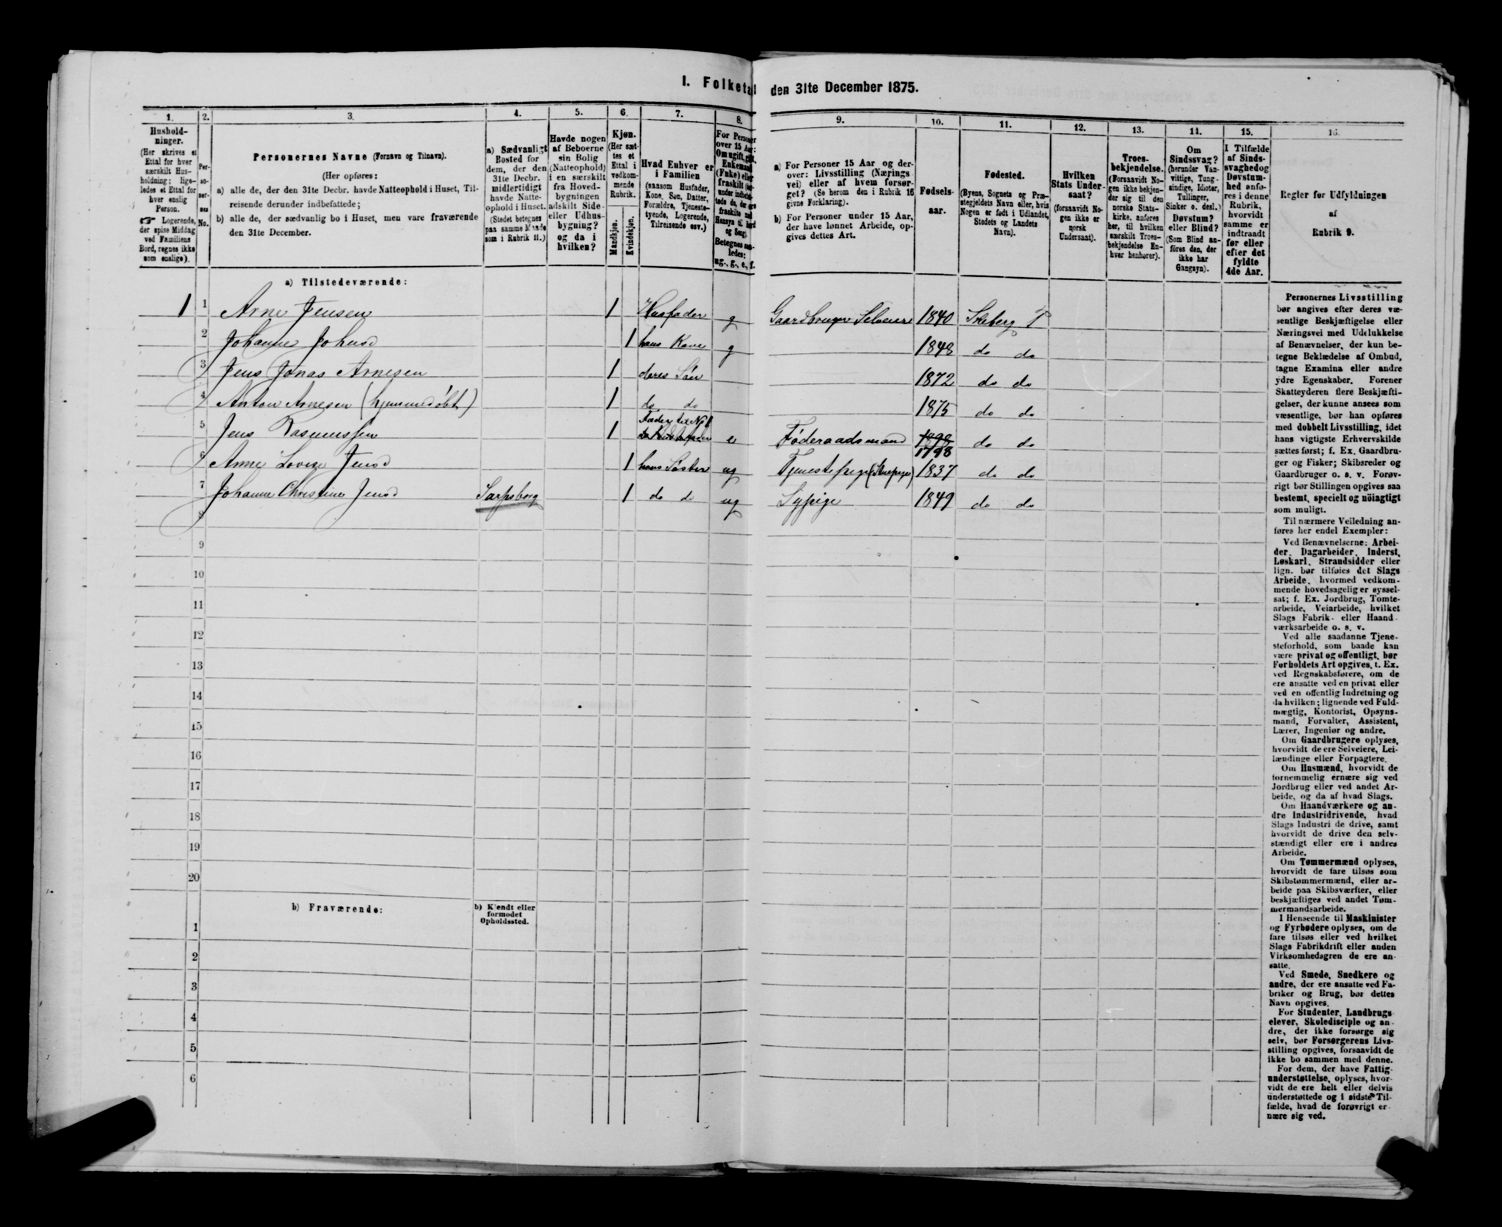 I. Folketal den 31te December 1875.
1.
Hushold-
ninger.
(Her skrives et
Ettal for hver
særskilt Hus-
holdning; lige-
ledes et Ettal for
hver enslig
Person.
☞ Logerende,
der spise Middag
ved Familiens
Bord, regnes ikke
som enslige).
2.
Per-
so-
ner-
nes
No.
3.
Personernes Navne (Fornavn og Tilnavn).
(Her opføres:
a) alle de, der den 31te Decbr. havde Natteophold i Huset, Til-
reisende derunder indbefattede;
b) alle de, der sædvanlig bo i Huset, men vare fraværende
den 31te December.
4.
a) Sædvanligt
Bosted for
dem, der den
31te Decbr.
midlertidigt
havde Natte-
ophold i Huset.
(Stedet betegnes
paa samme Maade
som i Rubrik 11.)
5.
Havde nogen
af Beboerne
sin Bolig
(Natteophold)
i en særskilt
fra Hoved-
bygningen
adskilt Side-
eller Udhus-
bygning?
og da i
hvilken?
6.
Kjøn.
(Her sæt-
tes et
Ettal i
vedkom-
mende
Rubrik.
Mandkjøn.
Kvindekjøn.
7.
Hvad Enhver er
i Familien
(saasom Husfader,
Kone, Søn, Datter,
Forældre, Tjeneste-
tyende, Logerende,
Tilreisende osv.)
8.
For Personer
over 15 Aar:
Om ugift, gift,
Enkemand
(Enke) eller
fraskilt
Betegnes saa-
ledes:
ug., g., e., f.
9.
a) For Personer 15 Aar og der-
over: Livsstilling (Nærings-
vei) eller af hvem forsør-
get? (Se herom den i Rubrik 16
givne Forklaring).
b) For Personer under 15 Aar,
der have lønnet Arbeide, op-
gives dettes Art.
10.
Fødsels-
aar.
11.
Fødested.
(Byens, Sognets og Præ-
stegjeldets Navn eller, hvis
Nogen er født i Udlandet,
Stedets og Landets
Navn).
12.
Hvilken
Stats Under-
saat?
(forsaavidt No-
gen ikke er
norsk
Undersaat).
13.
Troes-
bekjendelse.
(Forsaavidt No-
gen ikke bekjen-
der sig til den
norske Stats-
kirke, anføres
her, til hvilken
særskilt Troes-
bekjendelse En-
hver henhører).
14.
Om
Sindssvag?
(herunder Van-
vittige, Tung-
sindige, Idioter,
Tullinger,
Sinker o. desl.)
Døvstum?
eller Blind?
(Som Blind an-
føres den, der
ikke har
Gangsyn).
15.
I Tilfælde
af Sinds-
svaghed og
Døvstum-
hed anfø-
res i denne
Rubrik,
hvorvidt
samme er
indtraadt
før eller
efter det
fyldte
4de Aar.
16.
Regler for Udfyldningen
af
Rubrik 9.
a) Tilstedeværende:
1 1 Arne Jensen 1 Husfader g Gaardbruger Selveier 1840 Skeberg P
2 Johanne Johnsd 1 hans Kone g 1848 do do
3 Jens Jonas Arnesen 1 deres Søn 1872 do do
4 Anton Arnesen (hjemmedøbt) 1 do do 1875 do do
5 Jens Rasmussen 1 Fader til No 1 e Føderaadsmand 1798 do do
6 Anne Lovise Jensd 1 hans Søster ug Tjenestepige 1837 do do
7 Johanne Christine Jensd Sarpsborg 1 do d ug Sypige 1849 do do
8
9
10
11
12
13
14
15
16
17
18
19
20
b) Fraværende:
b) Kjendt eller
formodet
Opholdssted.
1
2
3
4
5
6
Personernes Livsstilling
bør angives efter deres væ-
sentlige Beskjæftigelse eller
Næringsvei med Udelukkelse
af Benævnelser, der kun be-
tegne Beklædelse af Ombud,
tagne Examina eller andre
ydre Egenskaber. Forener
Skatteyderen flere Beskjæfti-
gelser, der kunne ansees som
væsentlige, bør han opføres
med dobbelt Livsstilling, idet
hans vigtigste Erhvervskilde
sættes først; f. Ex. Gaardbru-
ger og Fisker; Skibsreder og
Gaardbruger o. s. v. Forøv-
rigt bør Stillingen opgives saa
bestemt, specielt og nöiagtigt
som muligt.
Til nærmere Veiledning an-
føres her endel Exempler:
Ved Benævnelserne: Arbei-
der, Dagarbeider, Inderst,
Løskarl, Strandsidder eller
lign. bør tilføies det Slags
Arbeide, hvormed vedkom-
mende hovedsagelig er syssel-
sat; f. Ex. Jordbrug, Tomte-
arbeide, Veiarbeide, hvilket
Slags Fabrik- eller Haand-
værksarbeide o. s. v.
Ved alle saadanne Tjene-
steforhold, som baade kan
være privat og offentligt, bør
Forholdets Art opgives, t. Ex.
ved Regnskabsførere, om de
ere ansatte ved en privat eller
ved en offentlig Indretning og
da hvilken; lignende ved Fuld-
mægtig, Kontorist, Opsyns-
mand, Forvalter, Assistent,
Lærer, Ingeniør og andre.
Om Gaardbrugere oplyses,
hvorvidt de ere Selveiere, Lei-
lændinge eller Forpagtere.
Om Husmænd, hvorvidt de
fornemmelig ernære sig ved
Jordbrug eller ved andet Ar-
beide, og da af hvad Slags.
Om Haandværkere og an-
dre Industridrivende, hvad
Slags Industri de drive, samt
hvorvidt de drive den selv-
stændigt eller ere i andres
Arbeide.
Om Tømmermænd oplyses,
hvorvidt de fare tilsøs som
Skibstømmermænd, eller ar-
beide paa Skibsværfter, eller
beskjæftiges ved andet Tøm-
mermandsarbeide.
I Henseende til Maskinister
og Fyrbødere oplyses, om de
fare tilsøs eller ved hvilket
Slags Fabrikdrift eller anden
Virksomhedsgren de ere an-
satte.
Ved Smede, Snedkere og
andre, der ere ansatte ved Fa-
briker og Brug, bør dettes
Navn opgives.
For Studenter, Landbrugs-
elever, Skoledisciple og an-
dre, der ikke forsørge sig
selv, bør Forsørgerens Livs-
stilling opgives, forsaavidt de
ikke bo sammen med denne.
For dem, der have Fattig-
understøttelse, oplyses, hvor-
vidt de ere helt eller delvis
understøttede og i sidste Til-
fælde, hvad de forøvrigt er-
nære sig ved.